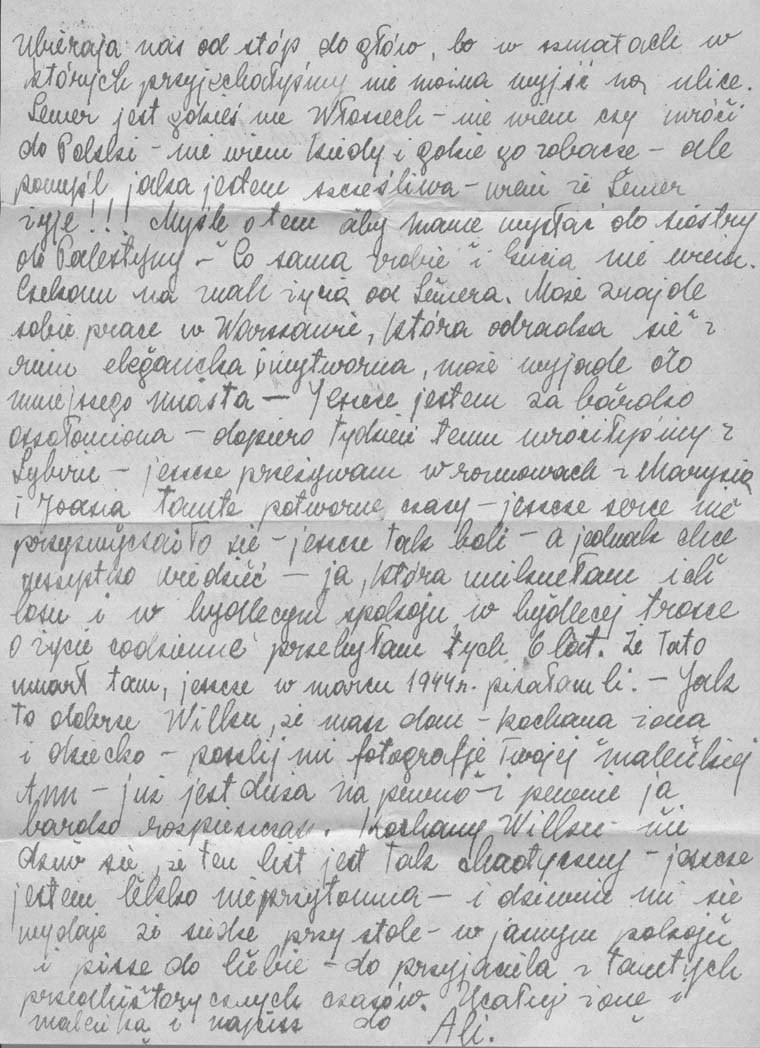 Ubierają nas od stóp do głów, bo w szmatach w
których przyjechałyśmy nie można wyjść na ulice.
Lemer jest gdzieś we Włoszech – nie wiem czy wróci
do Polski – nie wiem kiedy i gdzie go zobacze – ale
pomyśl jaka jestem szcześliwa – wiem że Lemer
żyje!!! Myśle o tem aby mame wysłać do siostry
do Palestyny – Co sama zrobie i Lucia nie wiem.
Czekam na znak życia od Lemera. Może znajde
sobie prace w Warszawie, która odradza sie z
ruin elegancka i wytworna, może wyjade do
mniejszego miasta – Jeszcze jestem za bardzo
oszołomiona – dopiero tydzień temu wróciłyśmy z
Sybiru – jeszcze przeżywam w rozmowach z Marysią
i Joasią tamte potworne czasy – jeszcze serce nie
przyzwyczaiło sie – jeszcze tak boli – a jednak chce
wszystko wiedzieć – ja, która uniknełam ich
losu i w bydlecym spokoju, w bydlecej trosce
o życie codzienne przebyłam tych 6 lat. Że Tato
umarł tam, jeszcze w marcu 1944 r. pisałam Ci. – Jak
to dobrze Wilku, że masz dom – kochana żona
i dziecko – poszlij mi fotografje Twojej maleńkiej
Ann – już jest duża na pewno i pewnie ja
bardzo rozpieszczasz. Kochany Wilku nie
dziw sie, że ten list jest tak chaotyczny – jeszcze
jestem lekko nieprzytomna – i dziwnie mi sie
wydaje że siedze przy stole – w jasnym pokoju
i pisze do Ciebie – do przyjaciela z tamtych
przedhistorycznych czasów. Ucałuj żone i
maleńką i napisz do
Ali.